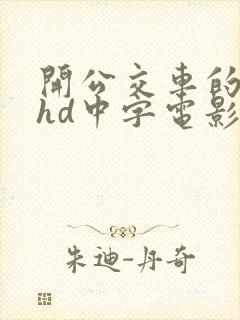 開公交車的
hd中字電影
朱迪-丹奇